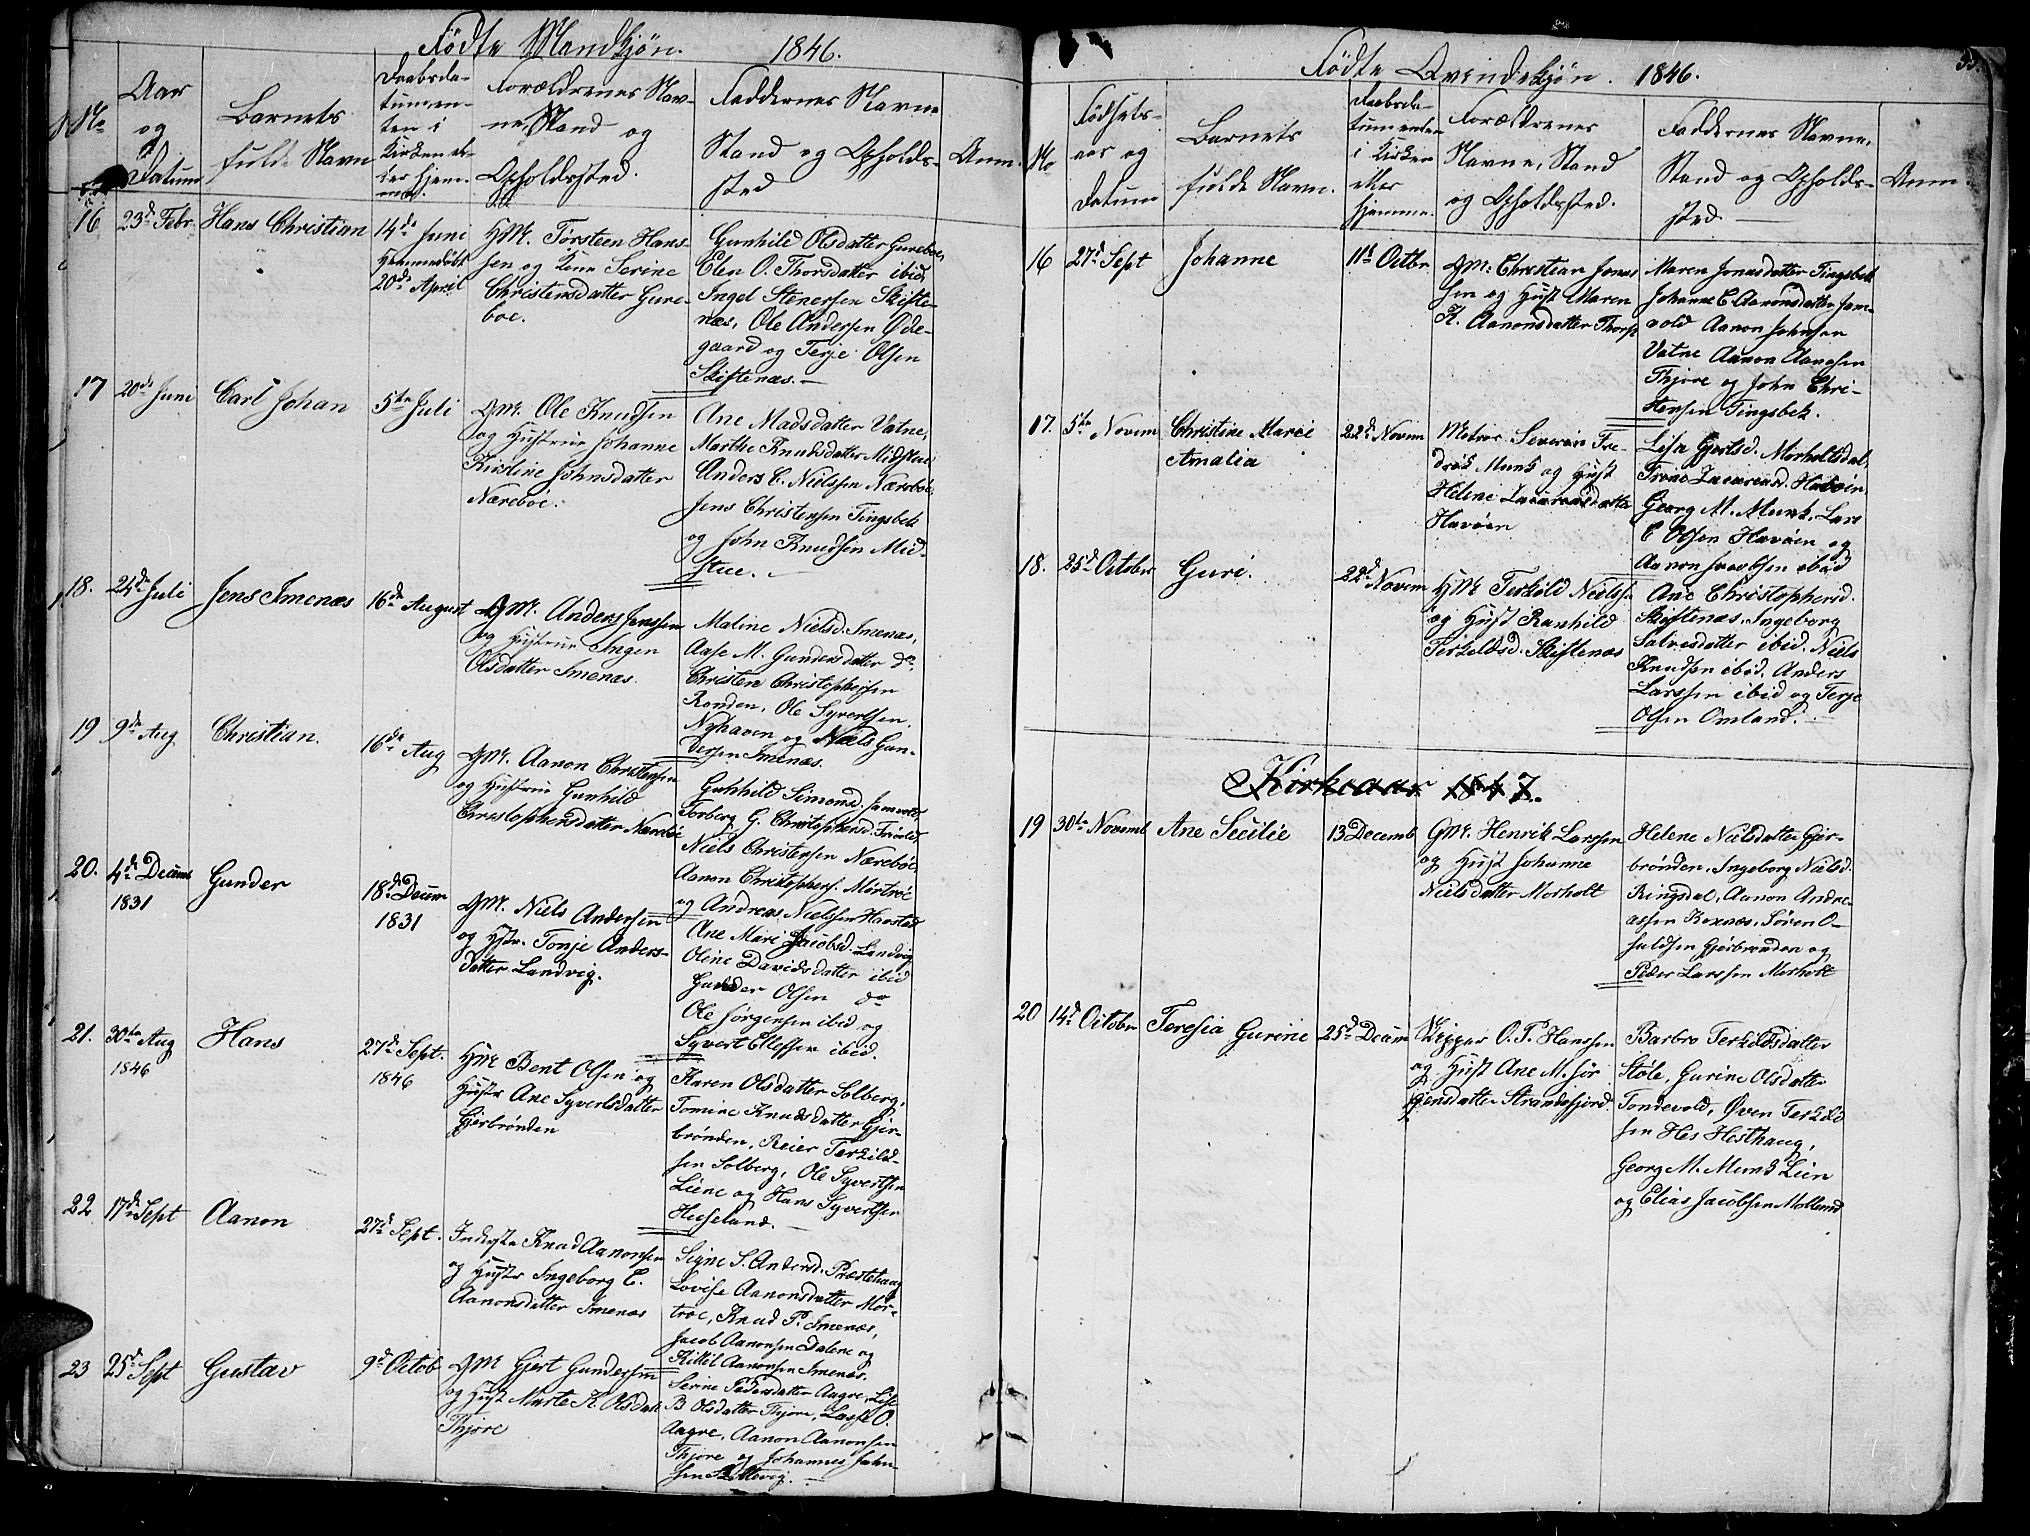 Fødte Mandkjøn. 1846.
No
Aar
og
Datum
Barnets
fulde Navn
Daabsda-
tumen-
ten i
Kirken el-
ler hjem-
me.
Forældrenes Nav-
ne, Stand og
Opholdssted.
Faddernes Navne
Stand og Opholds-
sted
Anm.
16
23de Febr.
Hans Christian
14de Juni
Hjemmedøbt
20de April
GM. Torsteen Hans-
sen og Kone Serine
Christensdatter Gure-
boe.
Gunhild Olsdatter Gureboe,
Elen O. Thorsdatter ibid,
Ingel Stenersen Skifte-
næs, Ole Andersen Øde-
gaard og Terje Olsen
Skiftenæs. —
17
20de Juni
Carl Johan
5te Juli
GM. Ole Knudsen
og Hustrue Johanne
Kirstine Johnsdatter
Nærebøe.
Ane Madsdatter Vatne,
Marthe Knudsdatter Midstue
Anders C. Nielssen Nærebøe,
Jens Christensen Tingsbek
og John Knudsen Mid-
stue. —
18.
24de Juli
Jens Imenæs
16de August
GM. Anders Jenssen
og Hustrue Ingen
Olsdatter Imenæs.
Maline Nielsd. Imenæs,
Aase M. Gundersdatter do.
Christen Christophersen
Ronden, Ole Syvertsen
Nyhaven og Niels Gun-
dersen Imenæs.
19
9de Aug
Christian.
16de Aug
GM. Aanon Christensen
og Hustrue Gunhild
Christophersdatter Nærebøe
Gunhild Simonsd. Jamvold,
Torberg G. Christophersd. Frivold,
Niels Christensen Nærebøe,
Aanon Christophers. Mørtroe
og Andreas Nielssen Haastad
20.
4de Decemb
1831
Gunder
18de Decem
1831
GM. Niels Andersen
og Hstr. Tonje Anders-
datter Landvig.
Ane Mari Jacobsd. Landvig
Oline Davidsdatter ibid
Gunder Olsen do
Ole Jørgensen ibid og
Syvert Ellefsen ibid.
21.
30te Aug
1846
Hans
27de Sept.
1846
HM Bent Olsen og
Hustr Ane Syvertsdatter
Gjerbrønden
Karen Olsdatter Solberg,
Tomine Knudsdatter Gjer-
brønden, Reier Terkild-
sen Solberg, Ole Syvertsen
Liene og Hans Syvertsen
Heseland. —
22
17de Sept
Aanon
27de Sept.
Inderste Knud Aanonsen
og Hustr Ingeborg E.
Aanonsdatter Imenæs
Signe S. Andersd. Præstehaug
Lovise Aanonsdatter Mør-
troe, Knud P. Imenæs,
Jacob Aanonsen Dalene og
Kittil Aanonsen Imenæs.
23
25de Sept
Gustav
9de Octob
GM Gjert Gundersen
og Hust Marte K. Olsdatt
Thjore
Serine Pedersdatter Aagre, Lise
B Olsdatter Thjore, Lasse O.
Aagre, Aanon Aanonsen
Thjore og Johannes John-
sen
Fødte Qvindekjøn. 1846.
No
Fødsels-
aar og
Datum
Barnets
fulde Navn.
Daabsda-
tumenten
i Kirken
eller
hjemme.
Forældrenes
Navne, Stand
og Opholdssted.
Faddernes Navne,
Stand og Opholds-
sted. —
Anm.
16
27de Sept
Johanne
11te Octbr
GM: Christian Jens
sen og Hust Maren
K. Aanonsdatter Thorp
Maren Jonasdatter Tingsbek
Johanne C Aanonsdatter Jam-
vold Aanon Johnsen
Vatne Aanon Aanosen
Thjore og John Chri-
stensen Tingsbek.
17.
5te Novem
Christine Marie
Amalia
22de Novem
Matros Severin Fre-
drik Munk og Hust
Helene Zacariasdatter
Havøen
Lisa Gjertsd. Morholtsdal,
Trine Zacariasd. Havøen,
Georg M. Munk, Lars
E Olsen Havøen og
Aanon Jacobsen ibid
18.
25de October
Guri.
22de Novem
HM Terkild Nielsse
og Hust Ranhild
Terkildsd. Skiftenæs
Ane Christophersd.
Skiftenæs, Ingeborg
Salvesdatter ibid. Niels
Knudsen ibid, Anders
Larssen ibid og Terje
Olsen Omland. —
Kirkeaar 1847.
19
30te Novemb
Ane Secilie
13 Decemb
GM. Henrik Larssen
og Hust Johanne
Nielsdatter Morholt
Helene Nielsdatter Gjer-
brønden, Ingeborg Nielsd.
Ringdal, Aanon Andre-
assen Roxnæs, Søren O-
suldsen Gjerbrønden og
Peder Larssen Morholt
20
14de October
Teresia Gurine
25de Decem
Skipper O. P. Hanssen
og Hust Ane M. Jør
gensdatter Strandefjord.
Barbro Terkildsdatter
Støle, Gurine Olsdatter
Tondevold, Øven Terkild
sen Hes Hesthaug,
Georg M. Munk Lien
og Elias Jacobsen Mollund